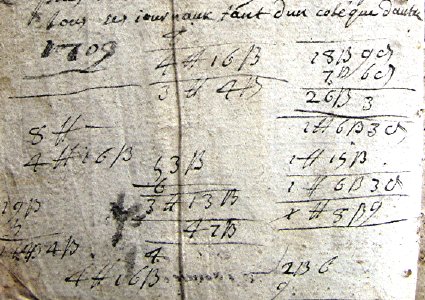 tous ses iournaux tant d'un coteque d'autre
1709
4
4 ₶ 16 ß
3 ₶ 4 ß
18 ß 9 d
7 ß 6 d
26 ß 3
8 ₶
4 ₶ 16 ß
1 ₶ 6 ß 3 d
1 ₶ 15 ß
53 ß
6
1 ₶ 6 ß 3 d
19 ß
3 ₶ 13 ß
₶ 8 ß 9
47 ß
4 ß
4
4 ₶ 16 ß
12 ß 6
9